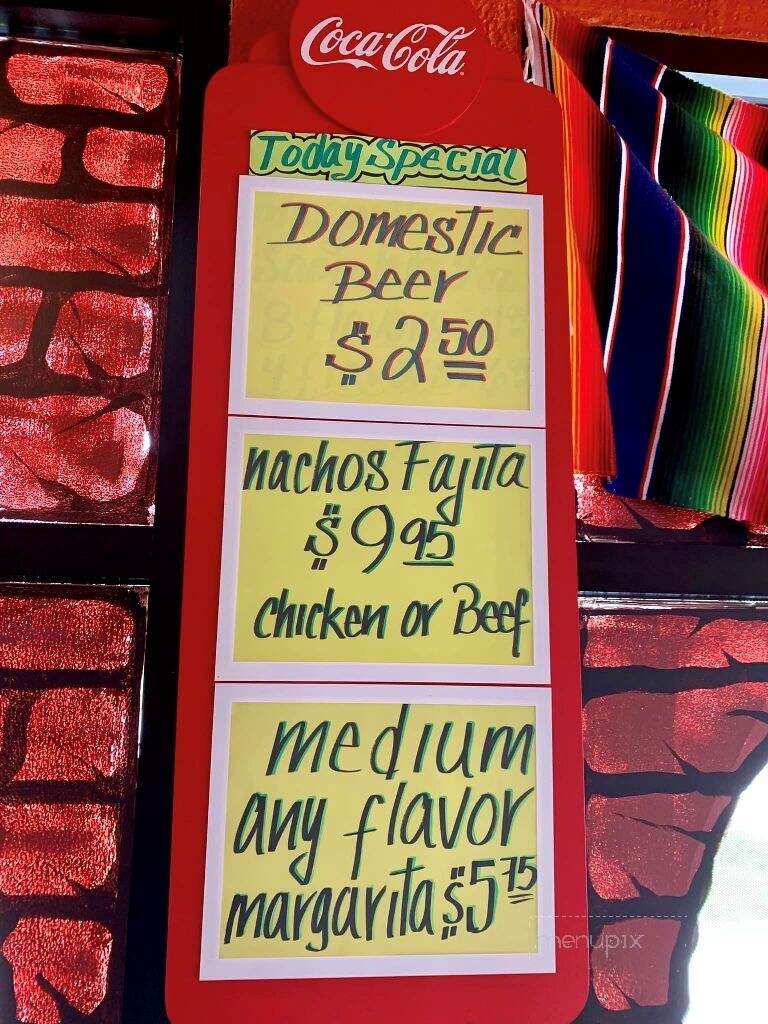 Coca-Cola
Today Special
Domestic
Beer
$2.50
nachos Fajita
$9.95
chicken or Beef
medium
any flavor
margarita $5.75
menupix